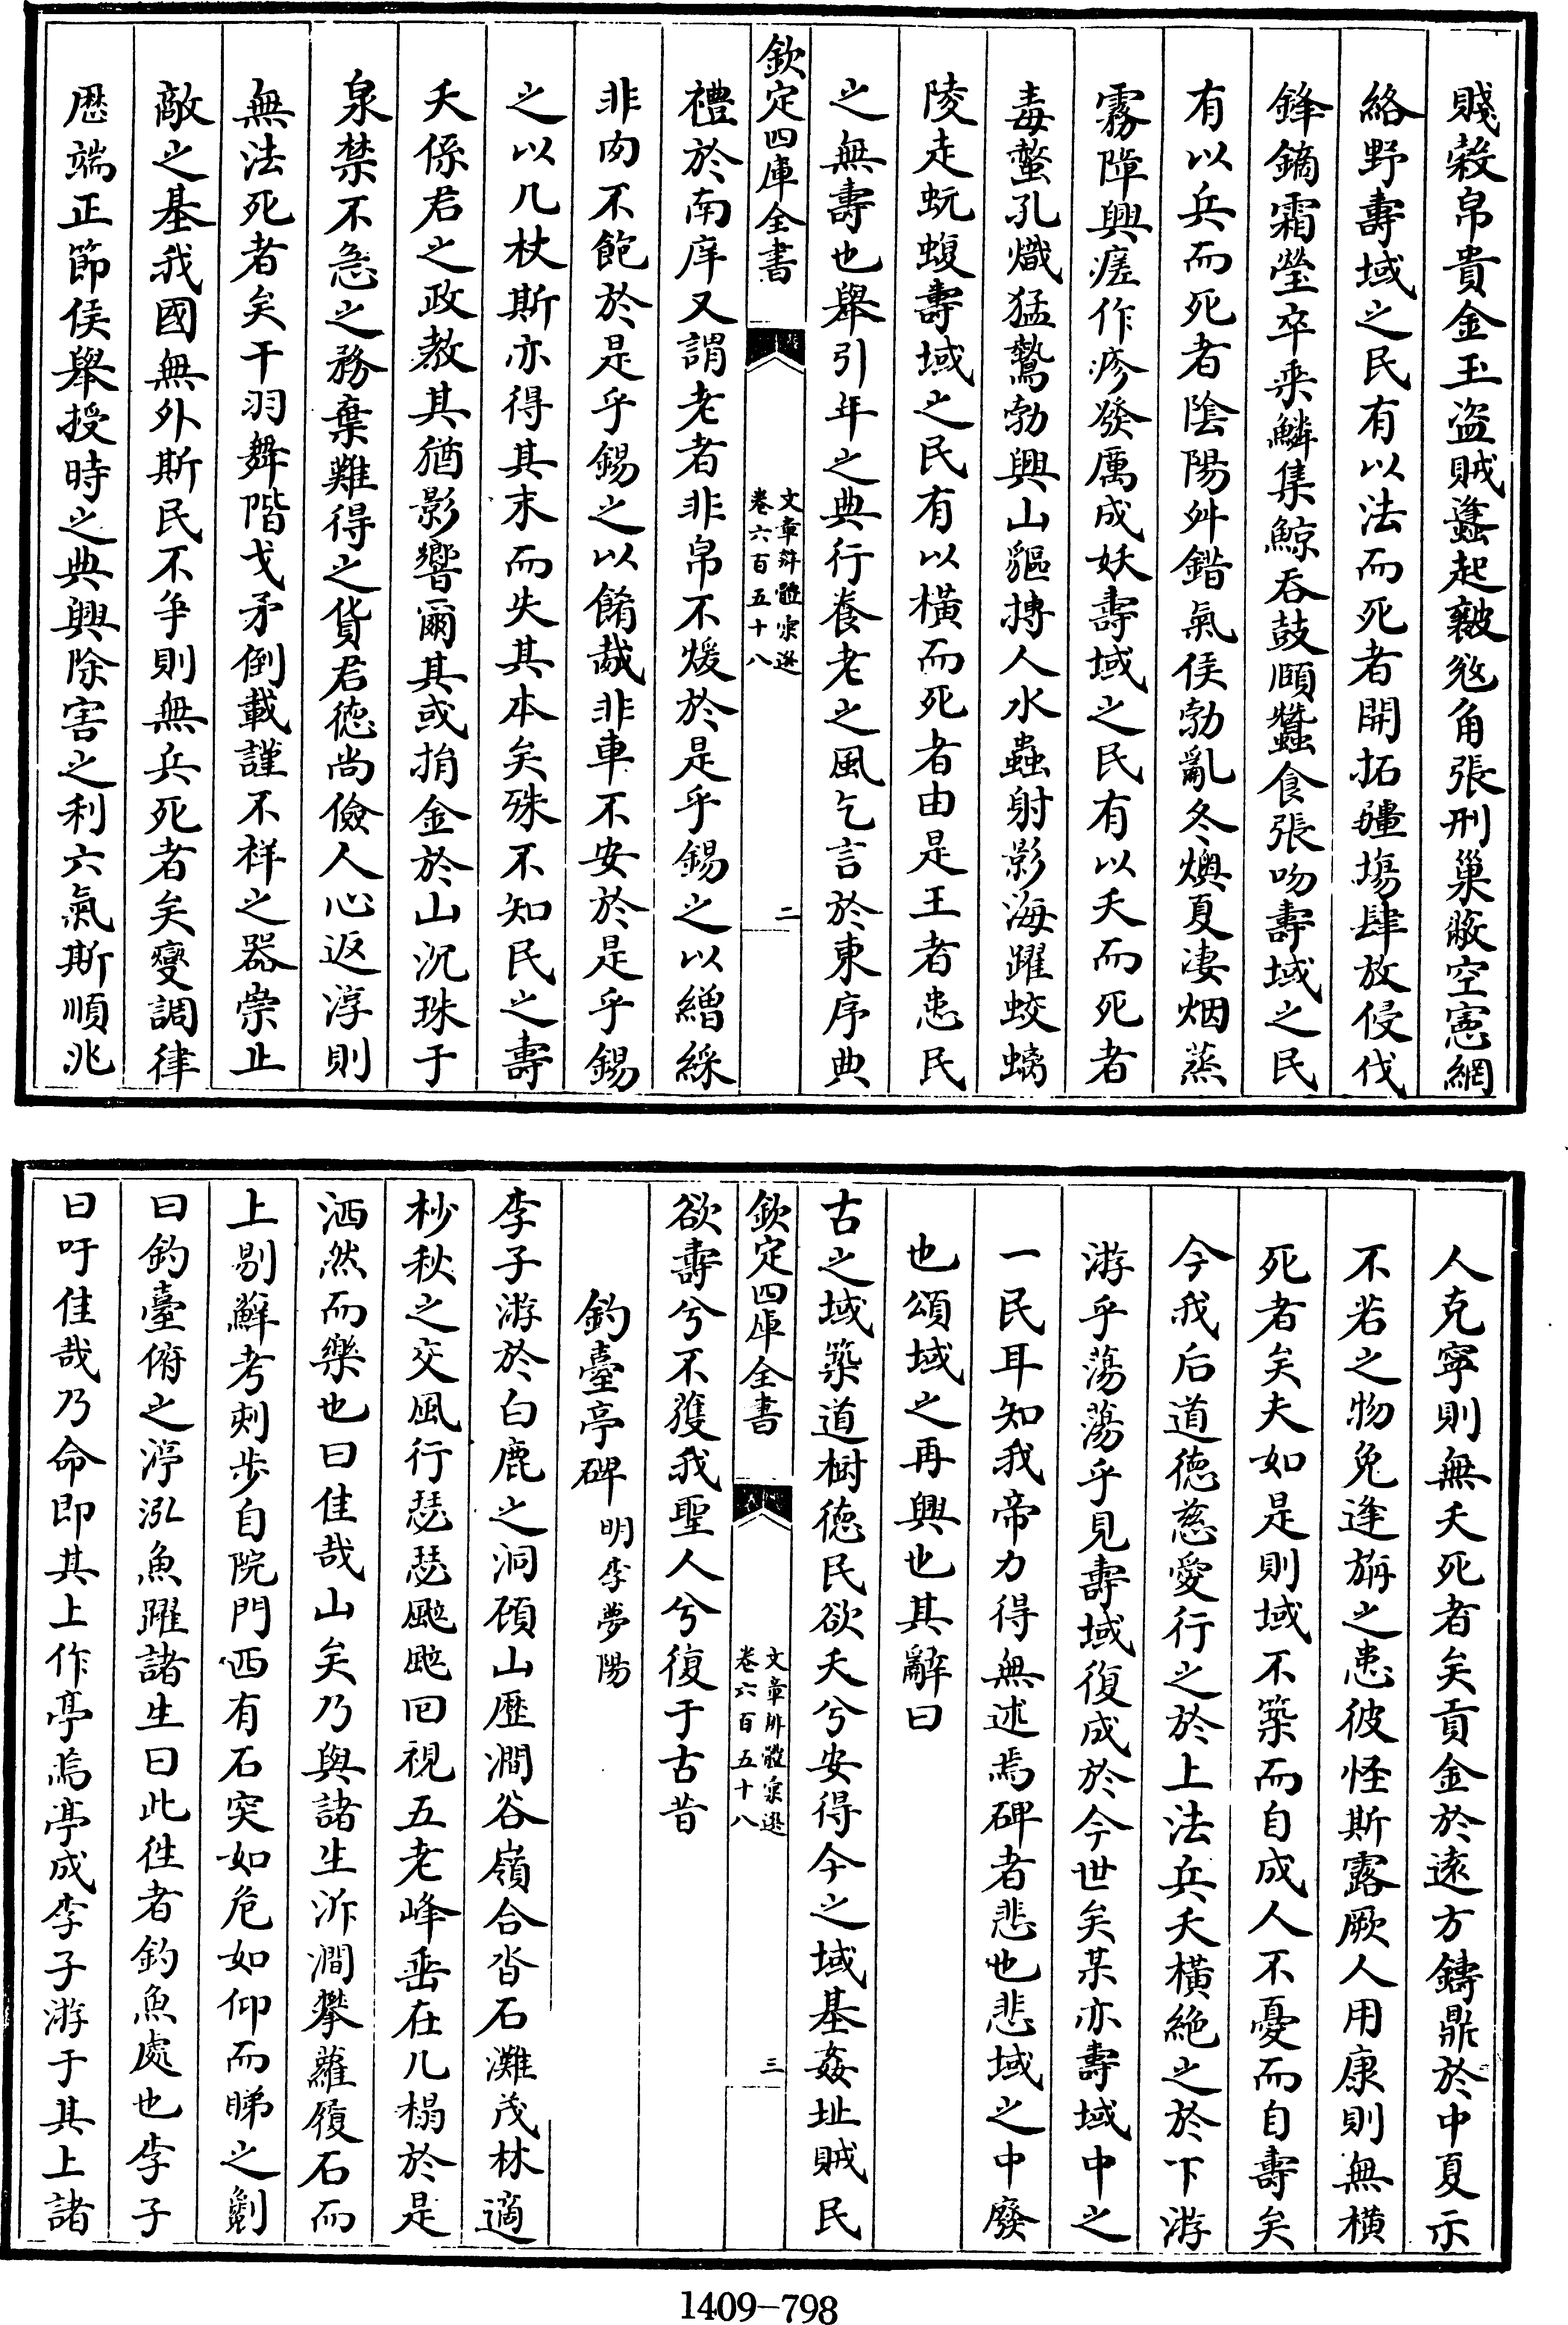 賤榖帛貴金玉盗賊蠭起敽㓂角張刑巢敝空憲網
絡野壽域之民有以法而死者開拓疆場肆放侵伐
鋒鏑霜瑩卒乘鱗集鯨吞鼓頤蠶食張吻壽域之民
有以兵而死者陰陽舛錯氣侯勃亂冬燠夏凄烟蒸
霧障興瘥作疹發厲成妖壽域之民有以夭而死者
毒螫孔熾猛鷙勃興山貙搏人水蟲射影海躍蛟螭
陵走蚖蝮壽域之民有以橫而死者由是王者患民
之無壽也舉引年之典行養老之風乞言於東序典
欽定四庫全書
文章辨體彙選
卷六百五十八
二
禮於南庠又謂老者非帛不煖於是乎錫之以繒綵
非肉不飽於是乎錫之以餚胾非車不安於是乎錫
之以几杖斯亦得其末而失其本矣殊不知民之壽
夭係君之政教其猶影響爾其或捐金於山沉珠于
泉禁不急之務棄難得之貨君德尚儉人心返淳則
無法死者矣干羽舞階戈矛倒載謹不祥之器崇止
敵之基我國無外斯民不爭則無兵死者矣變調律
歴端正節侯舉授時之典興除害之利六氣斯順兆
人克寧則無夭死者矣貢金於遠方鑄鼎於中夏示
不若之物免逢旃之患彼怪斯露厥人用康則無橫
死者矣夫如是則域不築而自成人不憂而自壽矣
今我后道德慈愛行之於上法兵夭橫絶之於下游
游乎蕩蕩乎見壽域復成於今世矣某亦壽域中之
一民耳知我帝力得無述焉碑者悲也悲域之中廢
也頌域之再興也其辭曰
古之域築道樹德民欲夭兮安得今之域基姦址賊民
欽定四庫全書
文章辨體彙選
卷六百五十八
三
欲壽兮不獲我聖人兮復于古昔
釣臺亭碑 明李夢陽
李子游於白鹿之洞碩山歴澗谷嶺合沓石灘茂林適
杪秋之交風行瑟瑟颭颭回視五老峰垂在几榻於是
洒然而樂也曰佳哉山矣乃與諸生泝澗攀蘿履石而
上剔蘚考刻步自院門西有石突如危如仰而睇之劖
曰釣臺俯之渟泓魚躍諸生曰此徃者釣魚處也李子
曰吁佳哉乃命即其上作亭焉亭成李子游于其上諸
1409-798